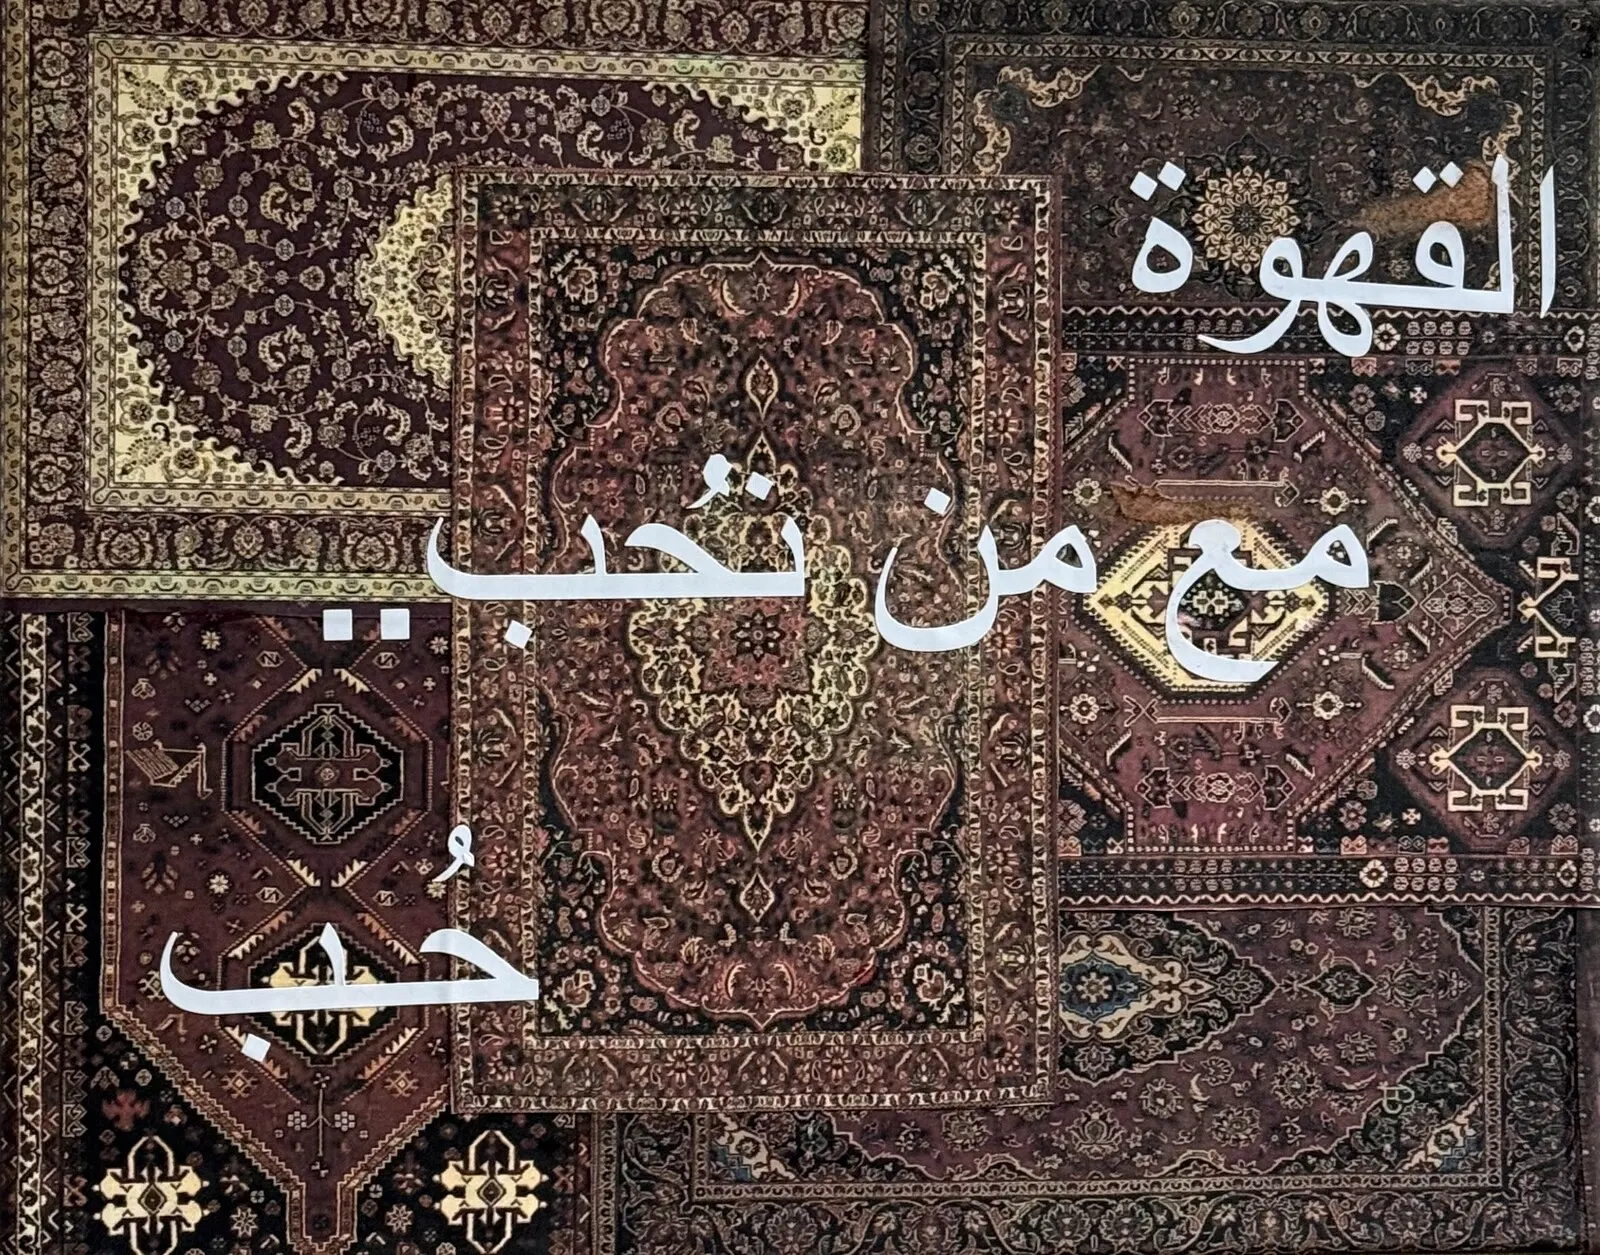 القهوة
مع من تُحب ..
حُب